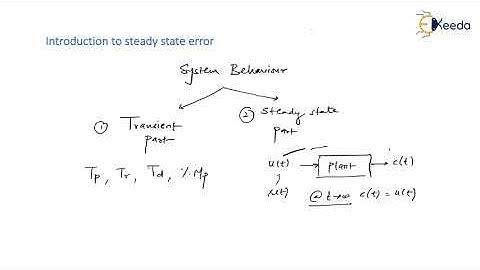 Introduction to steady state error
Ekeeda
System Behaviour
① Transient part
② Steady state part
Tp, Tr, Td, %Mp
u(t) → Plant → c(t)
r(t)
@ t→∞ c(t) = u(t)